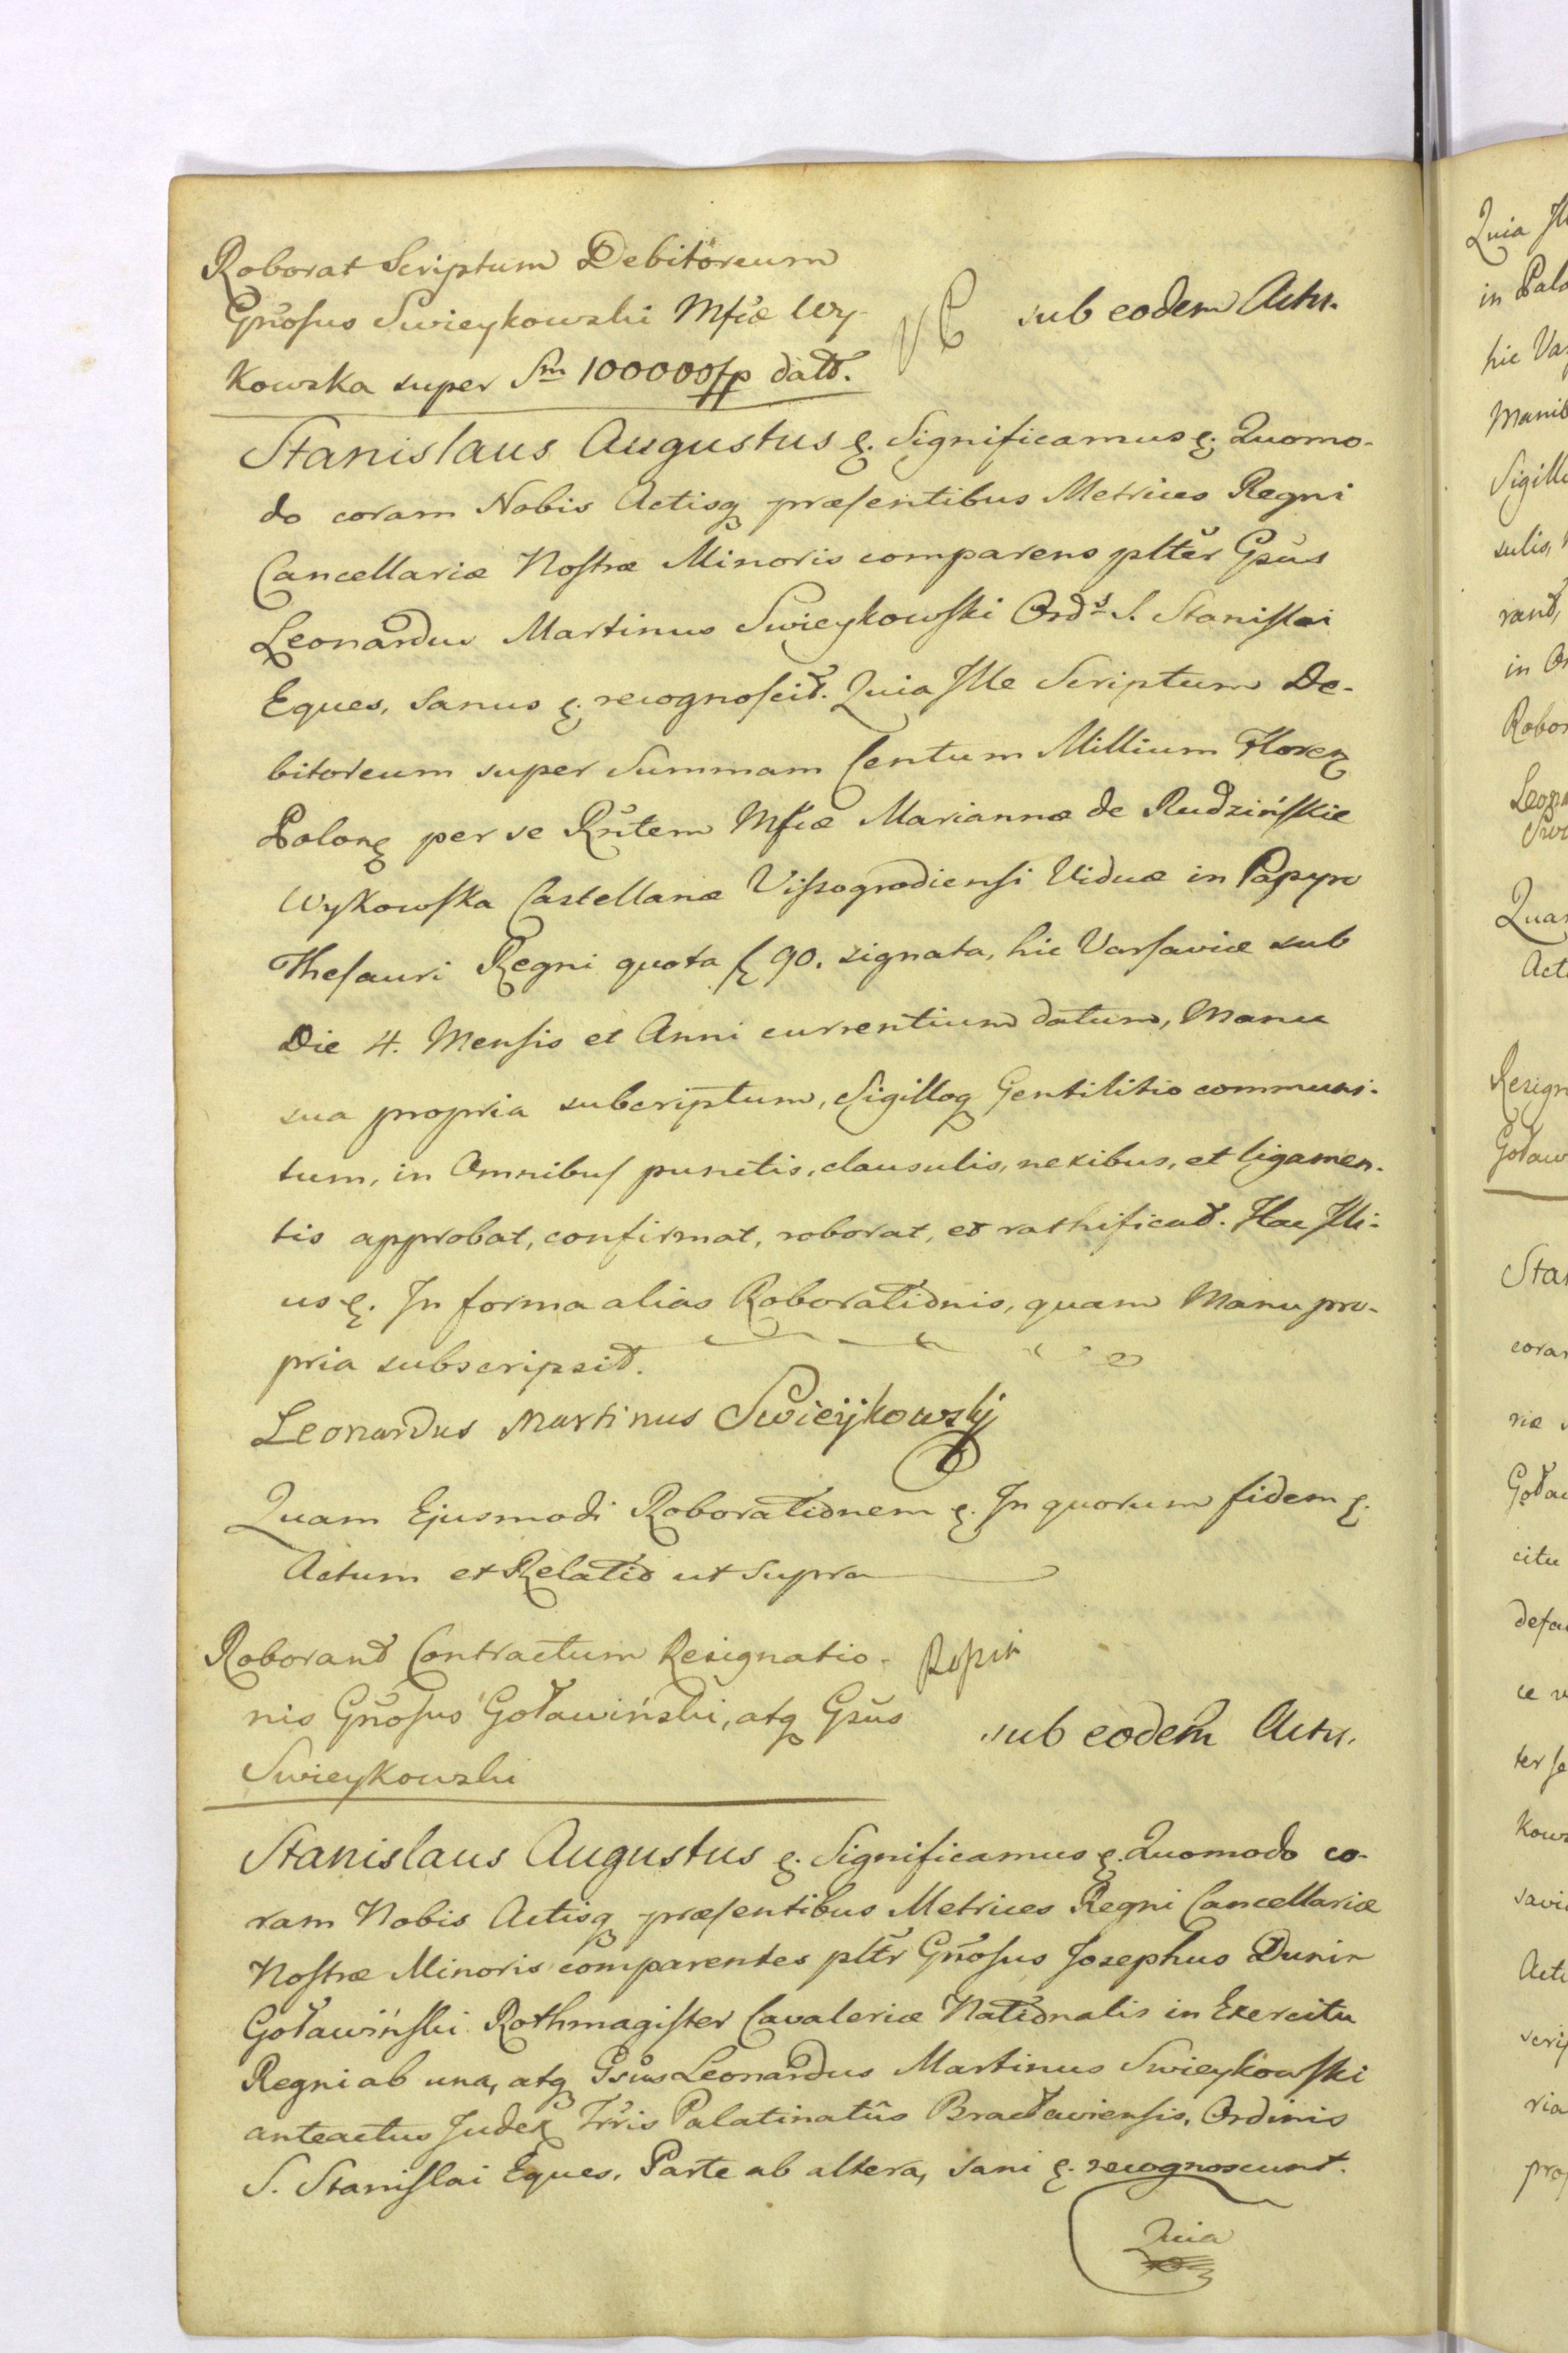 Roborat Scriptum Debitoreum
Gñosus Swieykowski Mfcæ Wy-
kowska super Sm 100000 fp datt.
sub eodem Actu.
Stanislaus Augustus &. Significamus &. Quomo-
do coram Nobis Actisq præsentibus Metrices Regni
Cancellariæ Nostræ Minoris comparens plter Gsus
Leonardus Martinus Swieykowski Ords S. Stanislai
Eques, Sanus &. recognoscit. Quia Ille Scriptum De-
bitoreum super Summam Centum Millium Floren
Polon per se Rntem Mfcæ Mariannæ de Rudzińskie
Wykowska Castellanæ Vissogrodiensi Viduæ in Papyro
Thesauri Regni quota f 90. signata, hic Varsaviæ sub
Die 4. Mensis et Anni currentium datum, Manu
sua propria subcriptum, Sigilloq Gentilitio communi-
tum, in Omnibus punctis, clausulis, nexibus, et ligamen-
tis approbat, confirmat, roborat, et rathificat. Hac Illi-
us &. In forma alias Roborationis, quam Manu pro-
pria subscripsit.
Leonardus Martinus Swieÿkowskj
Quam Ejusmodi Roborationem &. In quorum fidem &.
Actum et Relatio ut Supra
Roborant Contractum Resignatio-
nis Gñosus Goławiński, atq Gsus
Swieykowski
sub eodem Actu.
Stanislaus Augustus &. Significamus &. Quomodo co-
ram Nobis Actisq præsentibus Metrices Regni Cancellariæ
Nostræ Minoris comparentes pltr Gñosus Josephus Dunin
Goławiński Rothmagister Cavaleriæ Nationalis in Exercitu
Regni ab una, atq Gsus Leonardus Martinus Swieykowski
anteactus Judex Trris Palatinatûs Bracławiensis, Ordinis
S. Stanislai Eques, Parte ab altera, Sani &. recognoscunt.
Quia